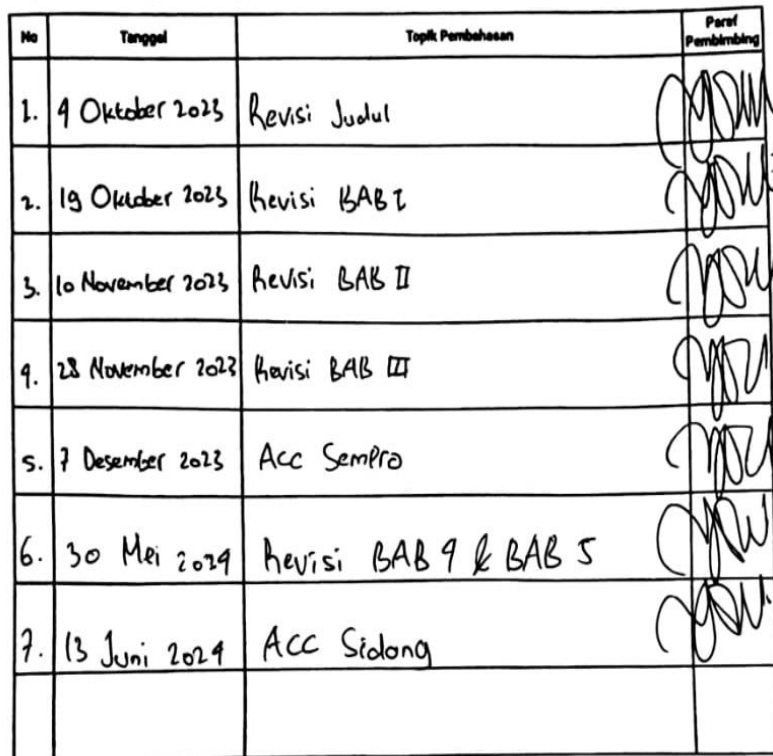 No Tanggal Topik Pembahasan Paraf Pembimbing
1. 4 Oktober 2023 Revisi Judul
2. 19 Oktober 2023 Revisi BAB I
3. 10 November 2023 Revisi BAB II
4. 28 November 2023 Revisi BAB III
5. 7 Desember 2023 Acc Sempro
6. 30 Mei 2024 Revisi BAB 4 & BAB 5
7. 13 Juni 2024 Acc Sidang